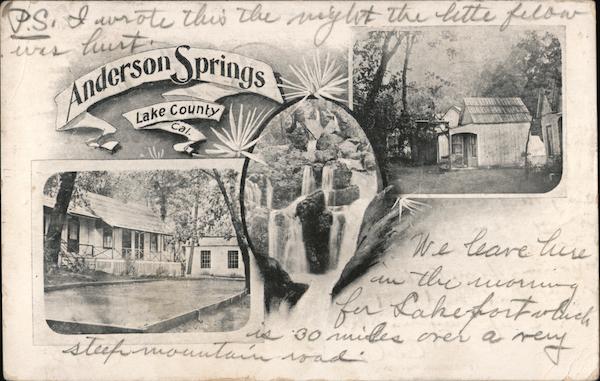 P.S. I wrote this the night the little fellow
was hurt.
Anderson Springs
Lake County
Cal.
We leave here
in the morning
for Lakeport which
is 30 miles over a very
steep mountain road.